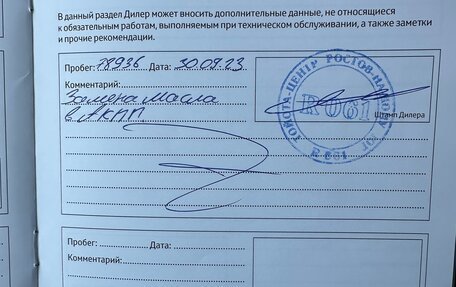 В данный раздел Дилер может вносить дополнительные данные, не относящиеся
к обязательным работам, выполняемым при техническом обслуживании, а также заметки
и прочие рекомендации.
Пробег: 78936 Дата: 30.09.23
Комментарий:
Замена масла
в АКПП
ТОЙОТА-ЦЕНТР РОСТОВ-НА-ДОНУ ЮГ
R 061
R 061
Штамп Дилера
Пробег: Дата:
Комментарий: